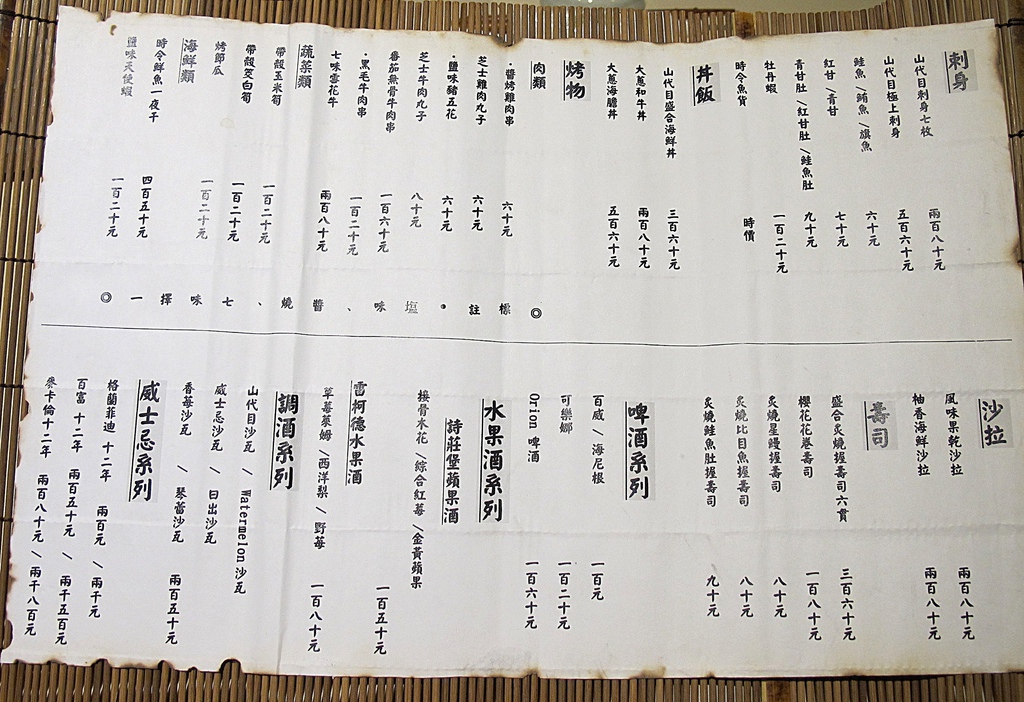 刺身
山代目刺身七枚 兩百八十元
山代目極上刺身 五百六十元
鮭魚／鮪魚／旗魚 六十元
紅甘／青甘 七十元
青甘肚／紅甘肚／鮭魚肚 九十元
牡丹蝦 一百二十元
時令魚貨 時價
丼飯
山代目盛合海鮮丼 三百六十元
大蔥和牛丼 兩百八十元
大蔥海膽丼 五百六十元
烤物
肉類
·醬烤雞肉串 六十元
芝士雞肉丸子 六十元
·鹽味豬五花 六十元
芝士牛肉丸子 八十元
番茄無骨牛肉串 一百六十元
·黑毛牛肉串 一百二十元
七味雪花牛 兩百八十元
蔬菜類
帶殼玉米筍 一百二十元
帶殼茭白筍 一百二十元
烤節瓜 一百二十元
海鮮類
時令鮮魚一夜干 四百五十元
鹽味天使蝦 一百二十元
◎標註•塩味、醬燒、七味擇一◎
沙拉
風味果乾沙拉 兩百八十元
柚香海鮮沙拉 兩百八十元
壽司
盛合炙燒握壽司六貫 三百六十元
櫻花花卷壽司 一百八十元
炙燒星鰻握壽司 八十元
炙燒比目魚握壽司 八十元
炙燒鮭魚肚握壽司 九十元
啤酒系列
百威／海尼根 一百元
可樂娜 一百二十元
Orion 啤酒 一百六十元
水果酒系列
詩莊堡蘋果酒
接骨木花／綜合紅莓／金黃蘋果 一百五十元
雷柯德水果酒
草莓萊姆／西洋梨／野莓 一百八十元
調酒系列
山代目沙瓦 ／ Watermelon 沙瓦
威士忌沙瓦 ／ 日出沙瓦
香莓沙瓦 ／ 琴蕾沙瓦 兩百五十元
威士忌系列
格蘭菲迪 十二年 兩百元 ／ 兩千元
百富 十二年 兩百五十元 ／ 兩千五百元
麥卡倫十二年 兩百八十元 ／ 兩千八百元